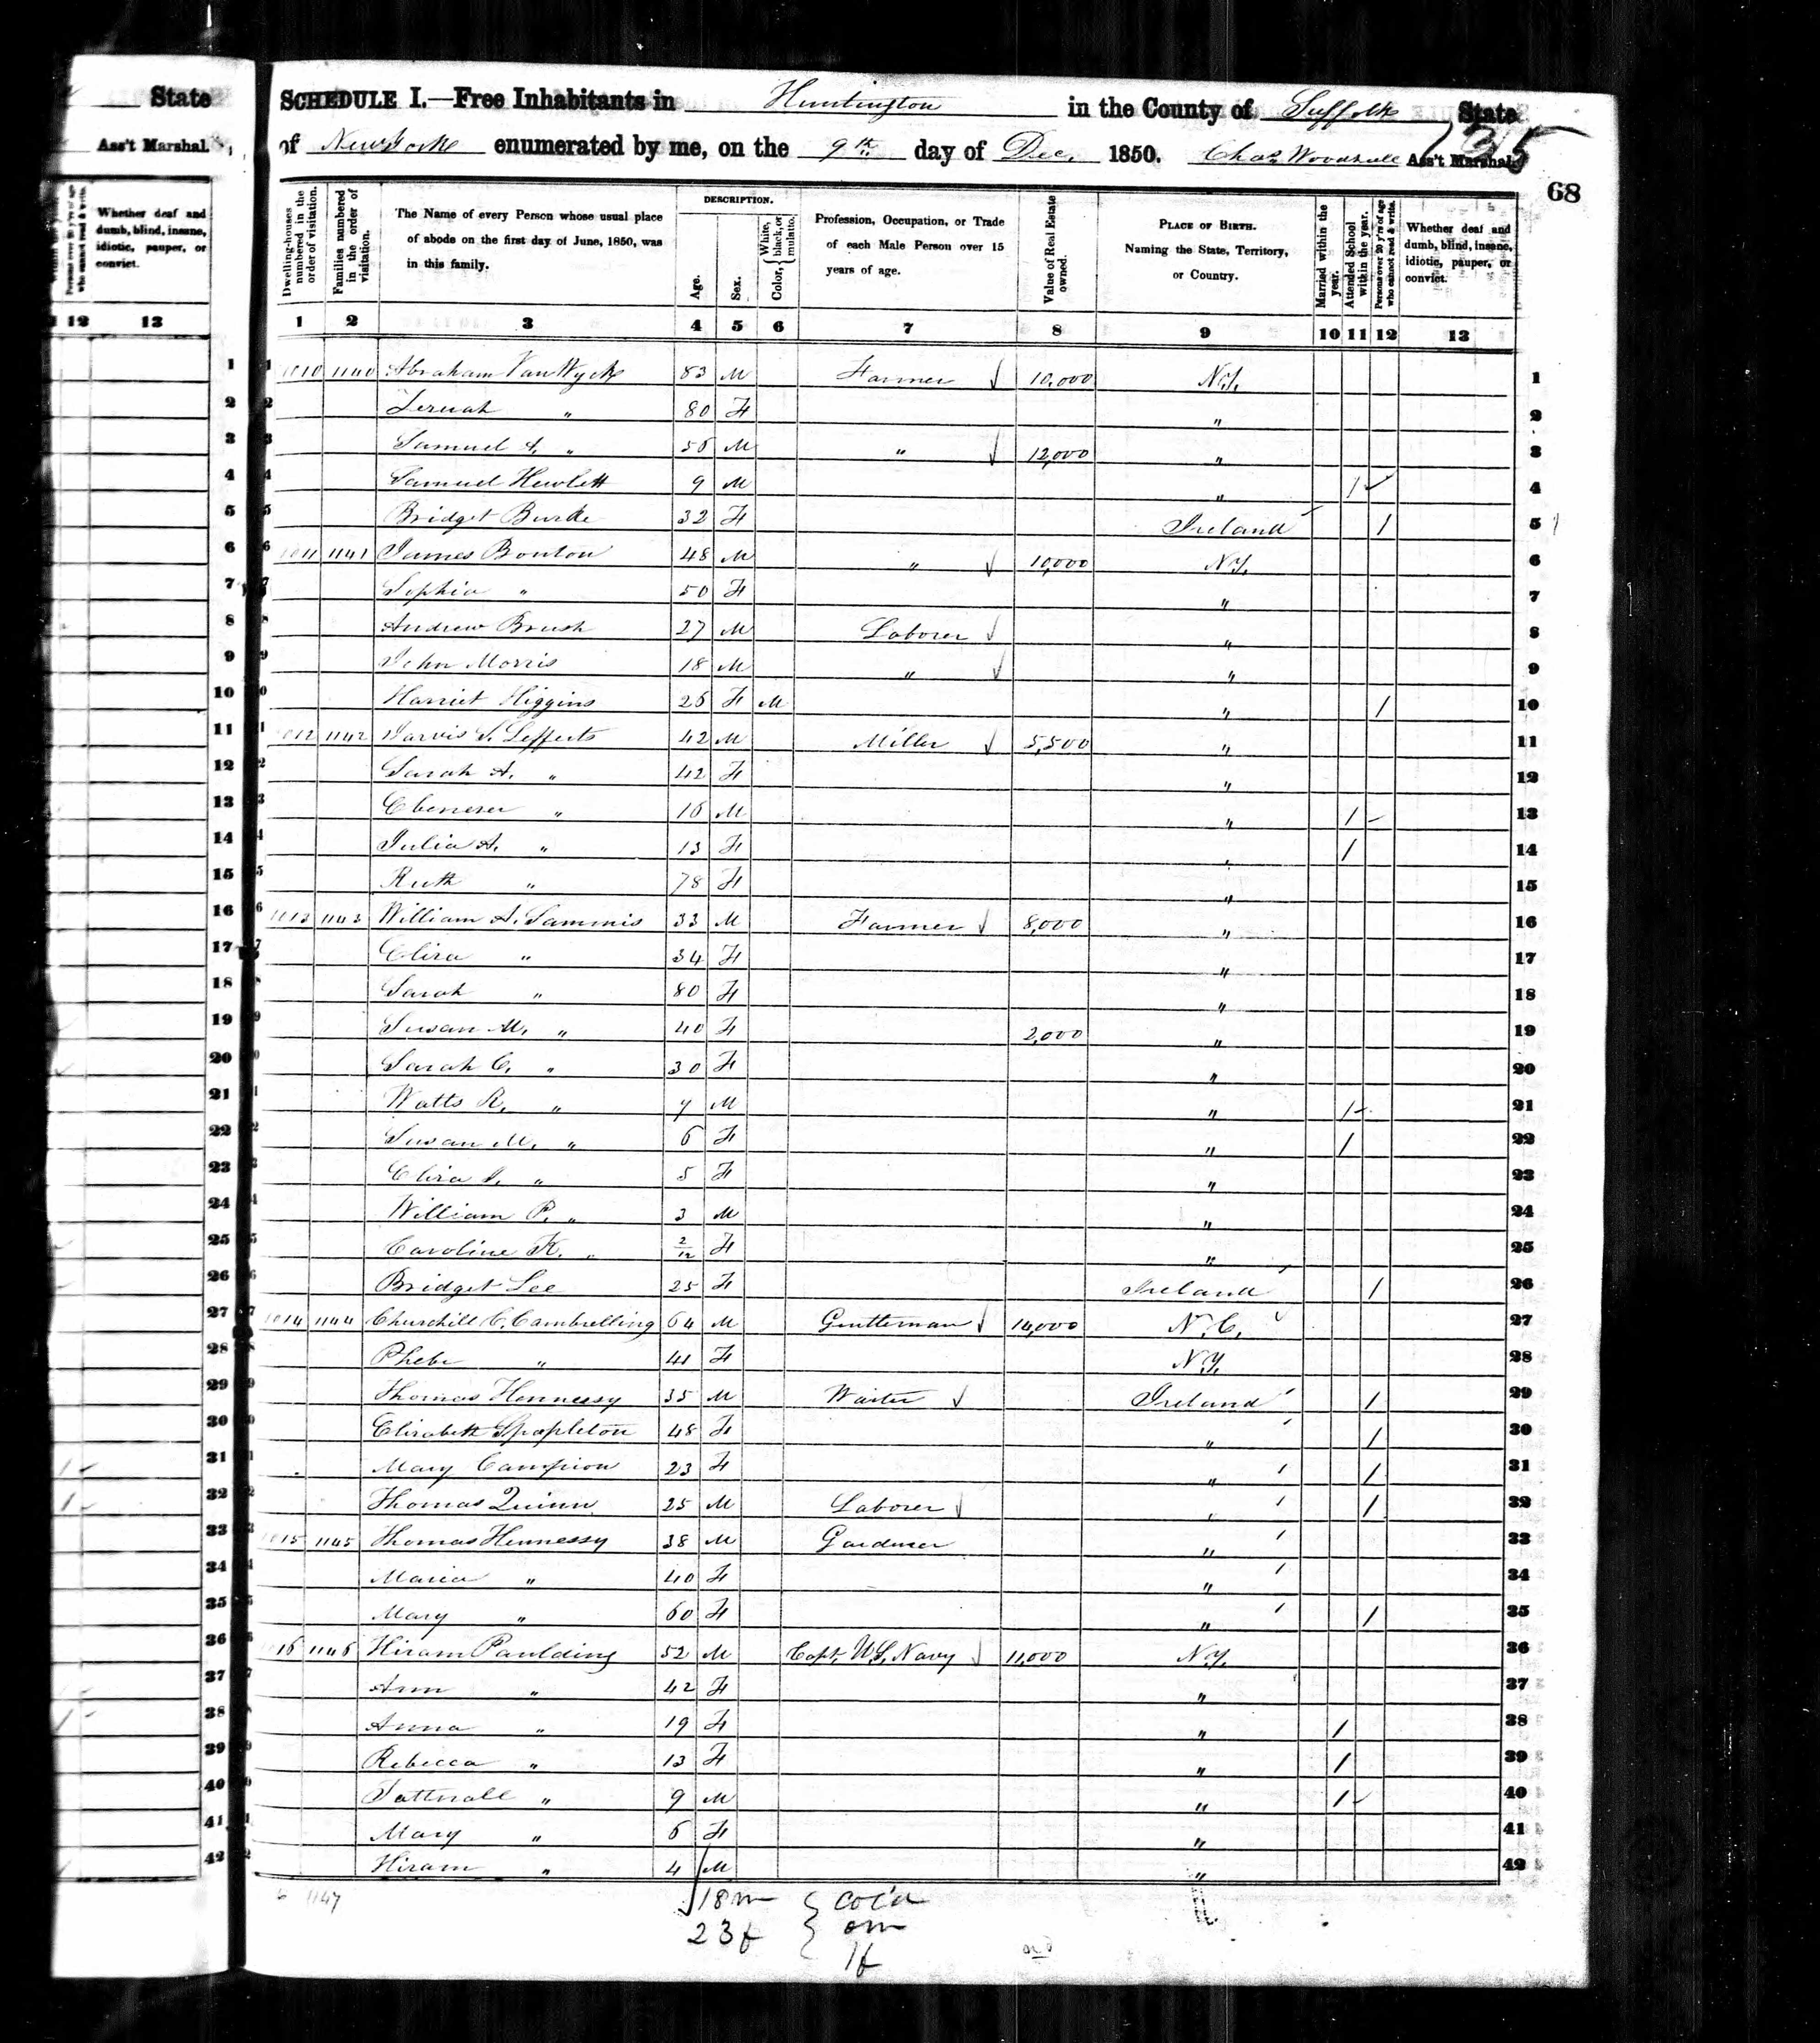 State
Ass't Marshal.
Whether deaf and dumb, blind, insane, idiotic, pauper, or convict.
12 13
SCHEDULE I.—Free Inhabitants in Huntington in the County of Suffolk State
of New York enumerated by me, on the 9th day of Dec. 1850. Chas Woodhull Ass't Marshal.
68
Dwelling-houses numbered in the order of visitation.
Families numbered in the order of visitation.
The Name of every Person whose usual place of abode on the first day of June, 1850, was in this family.
DESCRIPTION.
Age.
Sex.
Color, { White, black, or mulatto.
Profession, Occupation, or Trade of each Male Person over 15 years of age.
Value of Real Estate owned.
PLACE OF BIRTH. Naming the State, Territory, or Country.
Married within the year.
Attended School within the year.
Persons over 20 y'rs of age who cannot read & write.
Whether deaf and dumb, blind, insane, idiotic, pauper, or convict.
1 2 3 4 5 6 7 8 9 10 11 12 13
1 1010 1140 Abraham Van Wyck 83 M Farmer 10,000 N.Y. 1
2 Zeruah " 80 F " 2
3 Samuel A. " 56 M " 12,000 " 3
4 Samuel Hewlett 9 M " 1 4
5 Bridget Burke 32 F Ireland 1 5
6 1011 1141 James Bouton 48 M " 10,000 N.Y. 6
7 Sophia " 50 F " 7
8 Andrew Brush 27 M Laborer " 8
9 John Morris 18 M " " 9
10 Harriet Higgins 26 F M " 1 10
11 1012 1142 Jarvis S. Lefferts 42 M Miller 5,500 " 11
12 Sarah A. " 42 F " 12
13 Ebenezer " 16 M " 1 13
14 Julia A. " 13 F " 1 14
15 Ruth " 78 F " 15
16 1013 1143 William A. Sammis 33 M Farmer 8,000 " 16
17 Eliza " 34 F " 17
18 Sarah " 80 F " 18
19 Susan M. " 40 F 2,000 " 19
20 Sarah C. " 30 F " 20
21 Watts R. " 7 M " 1 21
22 Susan M. " 6 F " 1 22
23 Eliza J. " 5 F " 23
24 William P. " 3 M " 24
25 Caroline K. " 2/12 F " 25
26 Bridget Lee 25 F Ireland 1 26
27 1014 1144 Churchill C. Cambrelling 64 M Gentleman 14,000 N.C. 27
28 Phebe " 41 F N.Y. 28
29 Thomas Hennessy 35 M Waiter Ireland 1 29
30 Elizabeth Spapleton 48 F " 1 30
31 Mary Campion 23 F " 1 31
32 Thomas Quinn 25 M Laborer " 1 32
33 1015 1145 Thomas Hennessy 38 M Gardener " 33
34 Maria " 40 F " 34
35 Mary " 60 F " 1 35
36 1016 1146 Hiram Paulding 52 M Capt. U.S. Navy 11,000 N.Y. 36
37 Ann " 42 F " 37
38 Anna " 19 F " 1 38
39 Rebecca " 13 F " 1 39
40 Tattnall " 9 M " 1 40
41 Mary " 6 F " 41
42 Hiram " 4 M " 42
6 1147
18m } col'd
23f om
1f